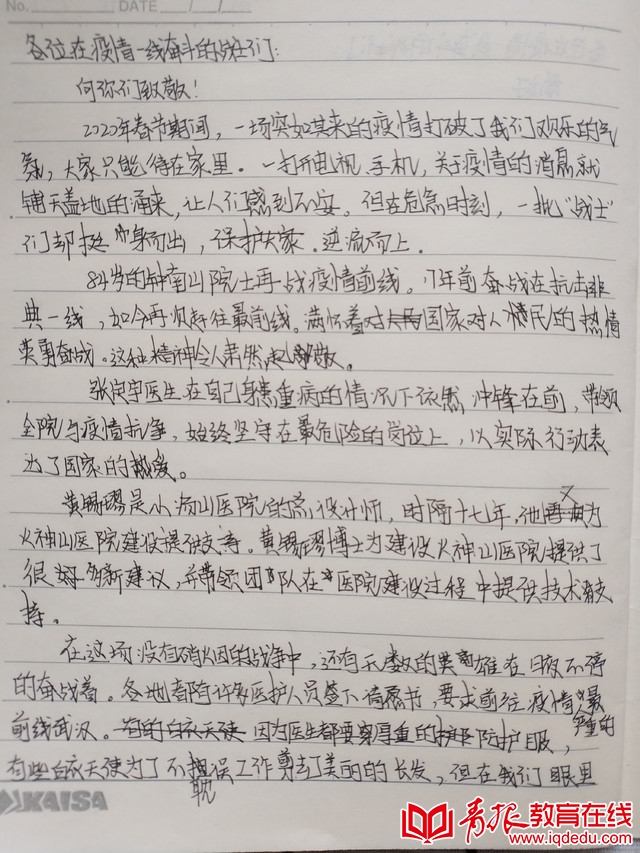 No.
DATE / /
各位在疫情一线奋斗的战士们:
向你们致敬!
2020年春节期间,一场突如其来的疫情打破了我们欢乐的气
氛,大家只能待在家里。一打开电视、手机,关于疫情的消息就
铺天盖地的涌来,让人们感到不安。但在危急时刻,一批“战士”
们却挺身而出,保护大家.逆流而上.
84岁的钟南山院士再战疫情前线。17年前奋战在抗击非
典一线,如今再次奔往最前线。满怀着对国家对人民的热情
英勇奋战。这种精神令人肃然起敬。
张定宇医生在自己身患重病的情况下依然冲锋在前,带领
全院与疫情抗争,始终坚守在最危险的岗位上,以实际行动表
达了国家的热爱。
黄锡璆是小汤山医院的总设计师,时隔十七年,他又为
火神山医院建设提供支持。黄锡璆博士为建设火神山医院提供了
很多新建议,并带领团队在医院建设过程中提供技术支
持。
在这场没有硝烟的战争中,还有无数的英雄在日夜不停
的奋战着。各地都有许多医护人员签下请愿书,要求前往疫情最严重的
前线武汉。因为医生都要穿厚重的防护服,
有些白衣天使为了不耽误工作剪去了美丽的长发,但在我们眼里
KAISA
青报教育在线
www.iqdedu.com